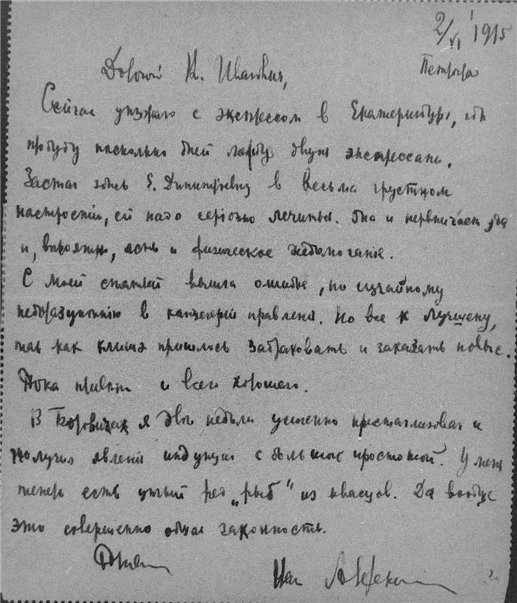 2/VI 1915
Петроград
Дорогой К. Иванович,
Сейчас уезжаю с экспрессом в Екатеринбург, где
пробуду несколько дней между двумя экспрессами.
Застал здесь Е. Дмитриевну в весьма грустном
настроении, ей надо серьозно лечиться. Она и нервничает
и, вероятно, есть и физическое недомогание.
С моей статьей вышла ошибка, по случайному
недоразумению в канцелярии правления. Но все к лучшему,
так как клише пришлось забраковать и заказать новые.
Пока привет и всего хорошего.
В Боровичах я две недели усиленно кристаллизовал и
получил явления индукции с большой простотой. У меня
теперь есть целый ряд „рыб" из квасцов. Да вообще
это совершенно общая законность.